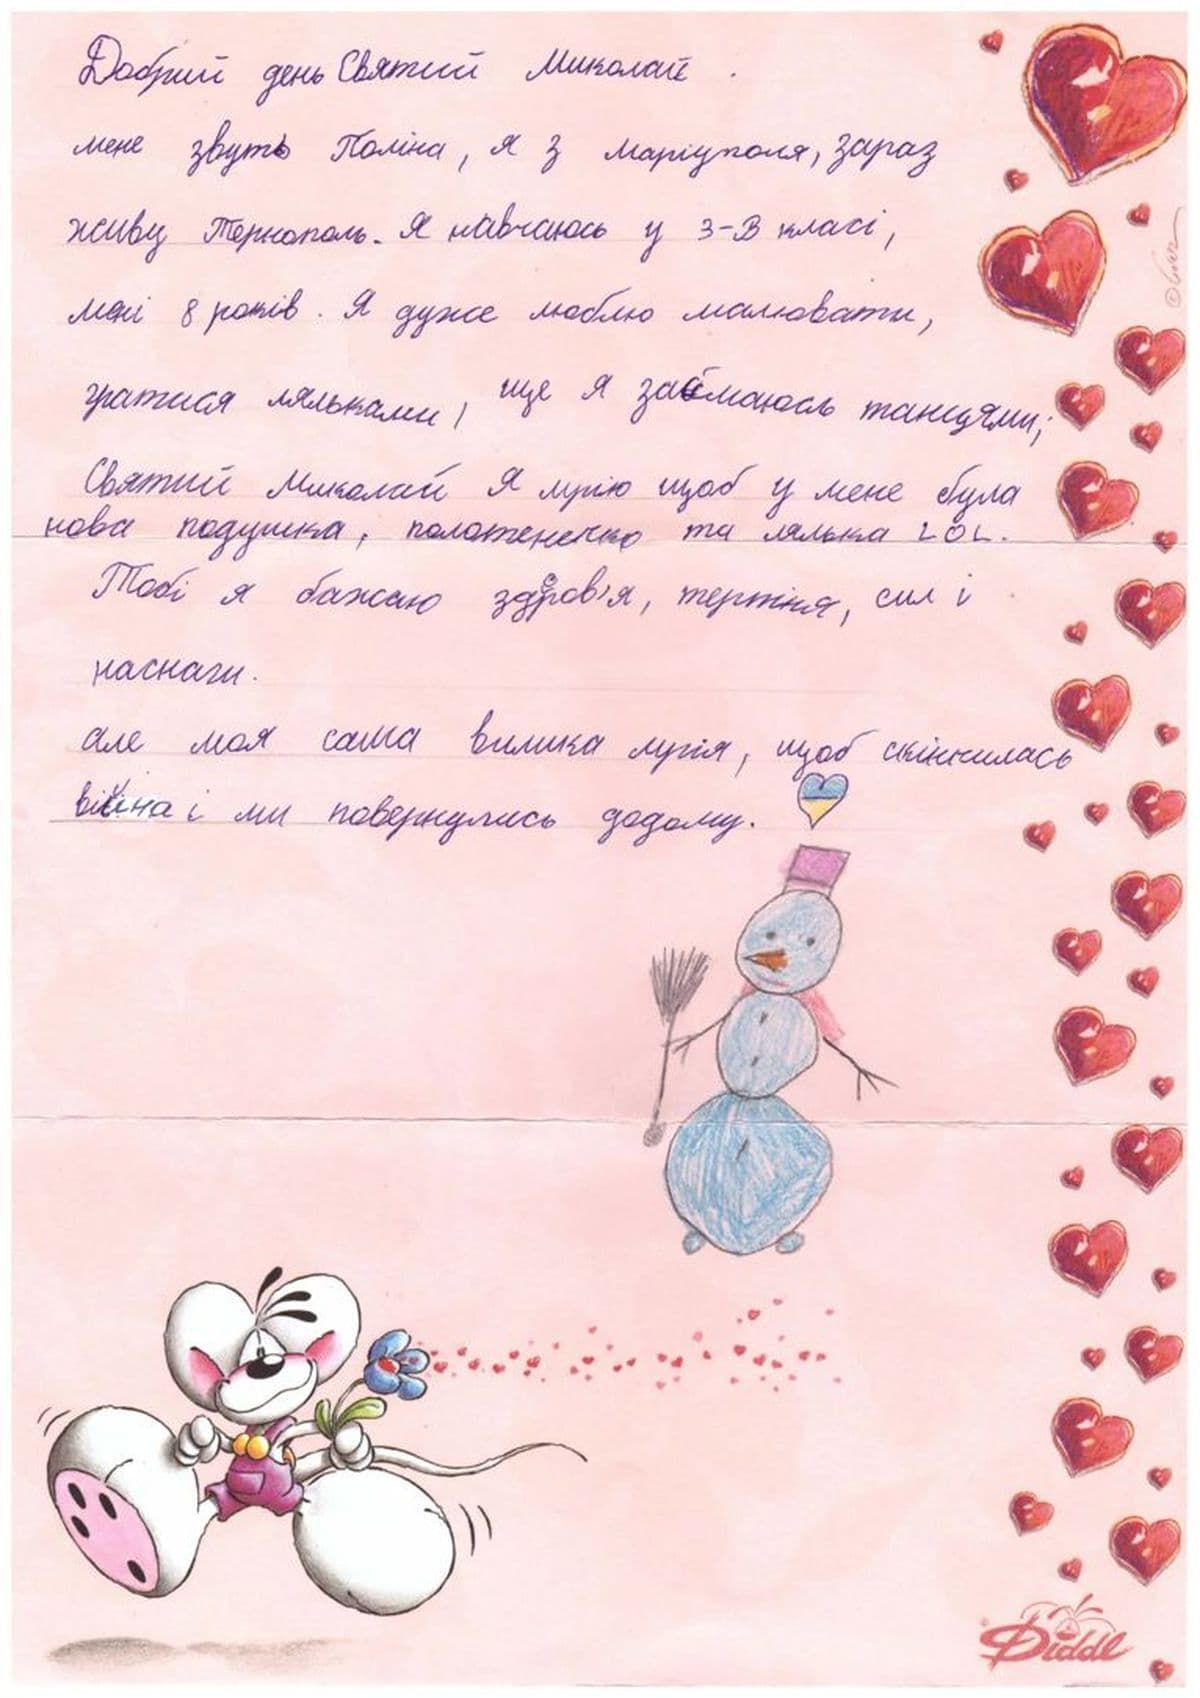 Добрий день Святий Миколай.
мене звуть Поліна, я з маріуполя, зараз
живу Тернополь. Я навчаюсь у 3-В класі,
мені 8 років. Я дуже люблю малювати,
гратися ляльками, ще я займаюсь танцями;
Святий Миколай Я мрію щоб у мене була
нова подушка, полотенечко та лялька LOL.
Тобі я бажаю здоров'я, терпіня, сил і
наснаги.
але моя сама вилика мрія, щоб скінчилась
війна і ми повернулись додому.
Diddl